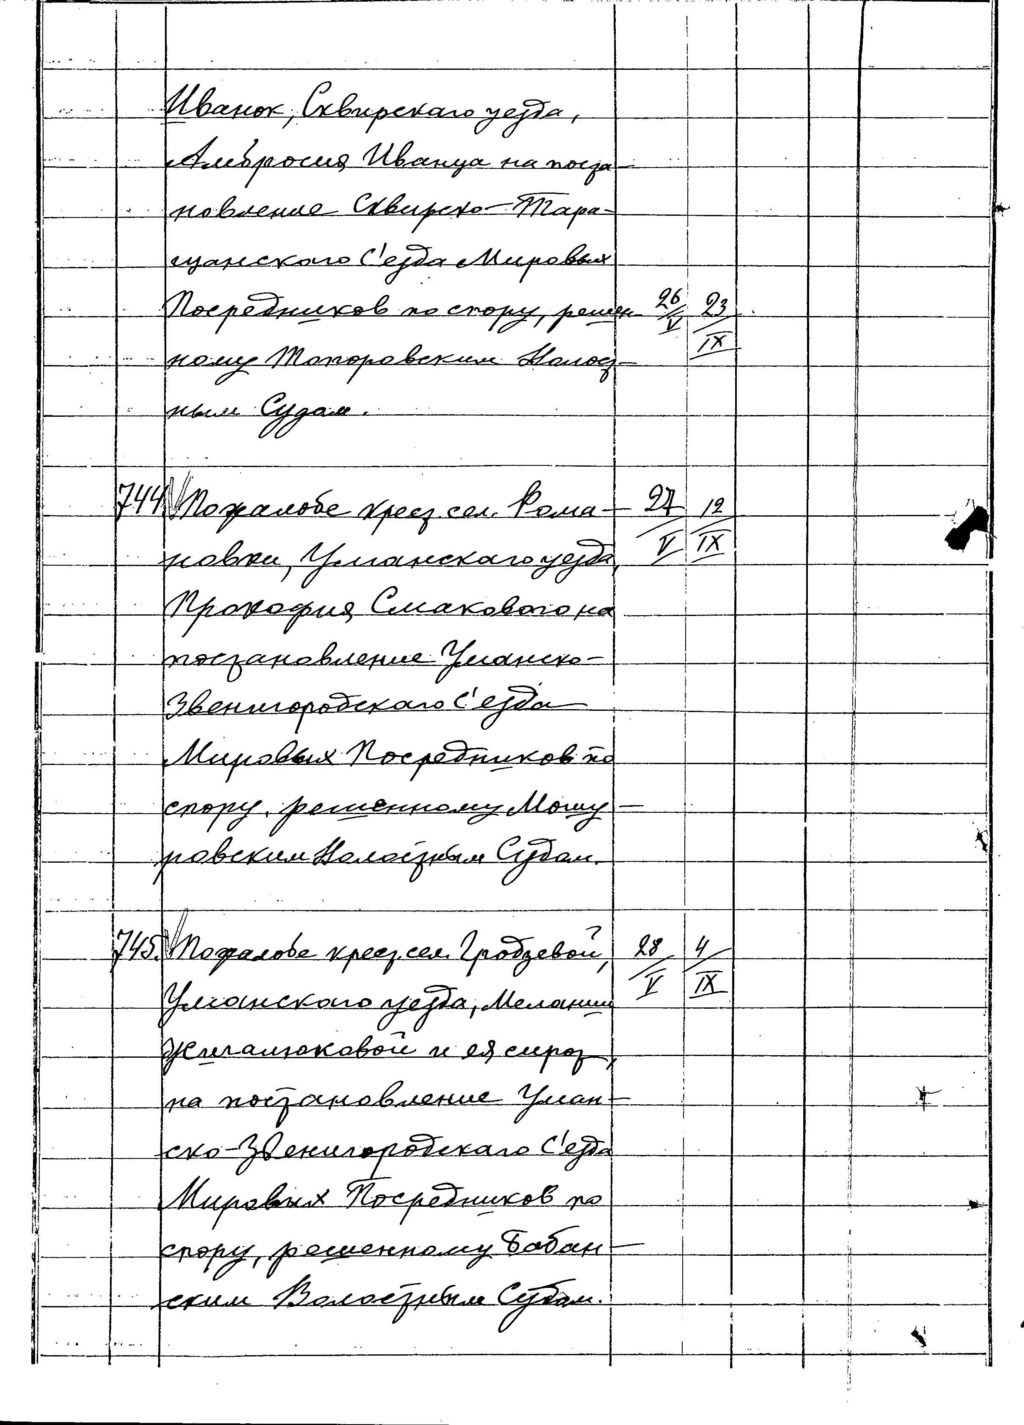 Иванок, Сквирскаго уезда,
Амбросия Иванца на поста-
новление Сквирско-Тара-
щанскаго С'езда Мировых
Посредников по спору, решен- 26/V 23/IX
ному Топоровским Волост-
ным Судом.
744 По жалобе крест. сел. Рома- 27/V 12/IX
новки, Уманскаго уезда,
Прокофия Смакового на
постановление Уманско-
Звенигородскаго С'езда
Мировых Посредников по
спору, решенному Машу-
ровским Волостным Судом.
745. По жалобе крест. сел. Гродзевой, 28/V 4/IX
Уманскаго уезда, Мелании
и ея сирот,
на постановление Уман-
ско-Звенигородскаго С'езда
Мировых Посредников по
спору, решенному Бабан-
ским Волостным Судом.